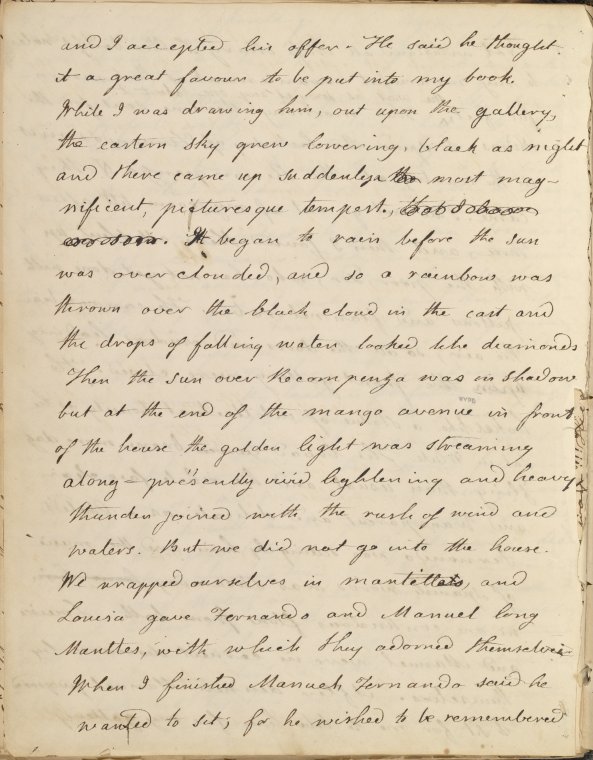 and I accepted his offer. He said he thought
it a great favour to be put into my book.
While I was drawing him, out upon the gallery,
the eastern sky grew lowering, black as night
and there came up suddenly a most mag-
nificent, picturesque tempest,
It began to rain before the sun
was over clouded, and so a rainbow was
thrown over the black cloud in the east and
the drops of falling water looked like diamonds
Then the sun over Recompenza was in shadow
but at the end of the mango avenue in front
of the house the golden light was streaming
along – presently vivid lightening and heavy
thunder joined with the rush of wind and
waters. But we did not go into the house.
We wrapped ourselves in mantillas, and
Louisa gave Fernando and Manuel long
Mantles, with which they adorned themselves
When I finished Manuel, Fernando said he
wanted to sit; for he wished to be remembered